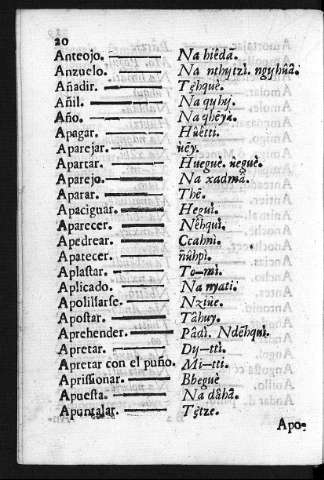 20
Anteojo. Na hiêdã.
Anzuelo. Na nthytzì. ngyhũã.
Añadir. Tęhquè.
Añil. Na quhy.
Año. Na qhēyã.
Apagar. Hũêtti.
Aparejar. ñēy.
Apartar. Huegùè. ñegùè.
Aparejo. Na xadmã.
Aparar. Thē.
Apaciguar. Heguì.
Aparecer. Nēhquì.
Apedrear. Ccahni.
Aparecer. ñũhpì.
Aplastar. To-mì.
Aplicado. Na nyati.
Apolillarse. Nziùe.
Apostar. Tâhuy.
Aprehender. Pâdì. Ndēhquì.
Apretar. Dy-ttì.
Apretar con el puño. Mi-tti.
Aprissionar. Bbeguè
Apuesta. Na dâhã.
Apuntalar. Tętze.
Apo-